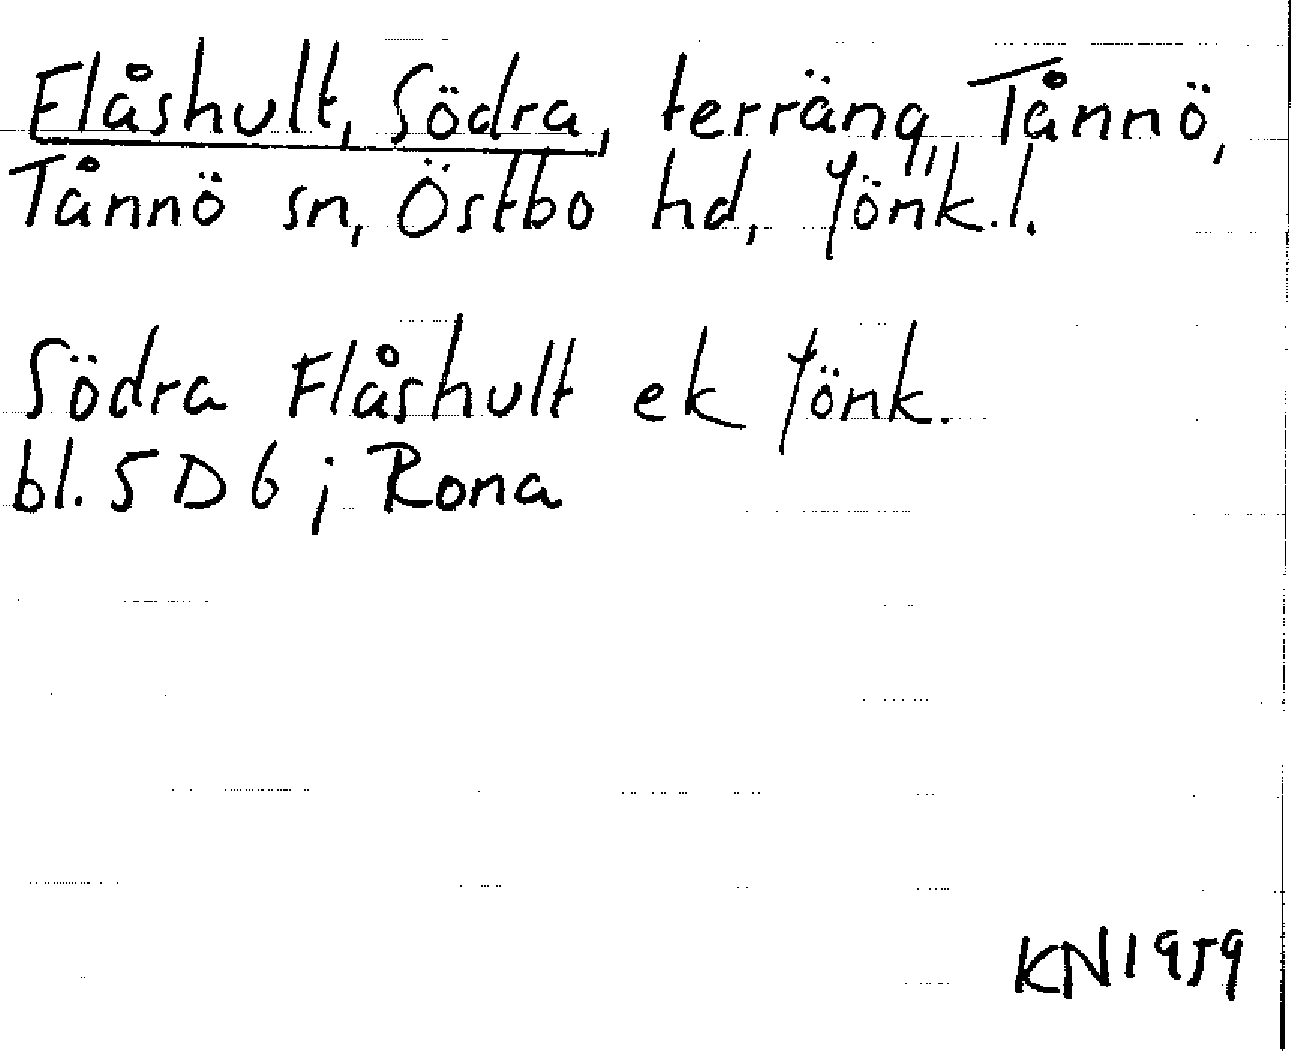 Flåshult, Södra, terräng, Tånnö,
Tånnö sn, Östbo hd, Jönk.l.
Södra Flåshult ek Jönk.
bl. 5 D 6 ; Rona
KN 1959